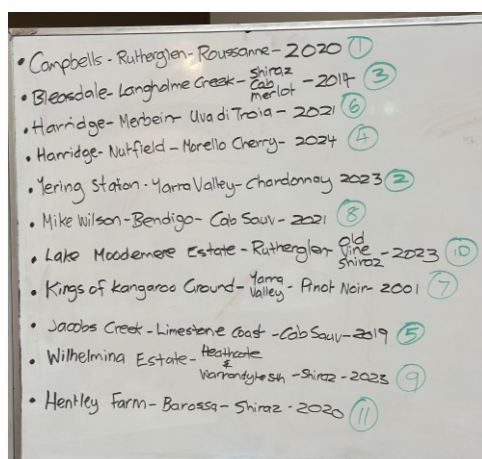 • Campbells - Rutherglen - Roussanne - 2020 ①
• Bleasdale - Langholme Creek - Shiraz Cab Merlot - 2014 ③
• Harridge - Merbein - Uva di Troia - 2021 ⑥
• Harridge - Nutfield - Morello Cherry - 2024 ④
• Yering Station - Yarra Valley - Chardonnay 2023 ②
• Mike Wilson - Bendigo - Cab Sauv - 2021 ⑧
• Lake Moodemere Estate - Rutherglen - Old Vine Shiraz - 2023 ⑩
• Kings of Kangaroo Ground - Yarra Valley - Pinot Noir - 2001 ⑦
• Jacobs Creek - Limestone Coast - Cab Sauv - 2019 ⑤
• Wilhelmina Estate - Heathcote & Warrandyte Sth - Shiraz - 2023 ⑨
• Hentley Farm - Barossa - Shiraz - 2020 ⑪